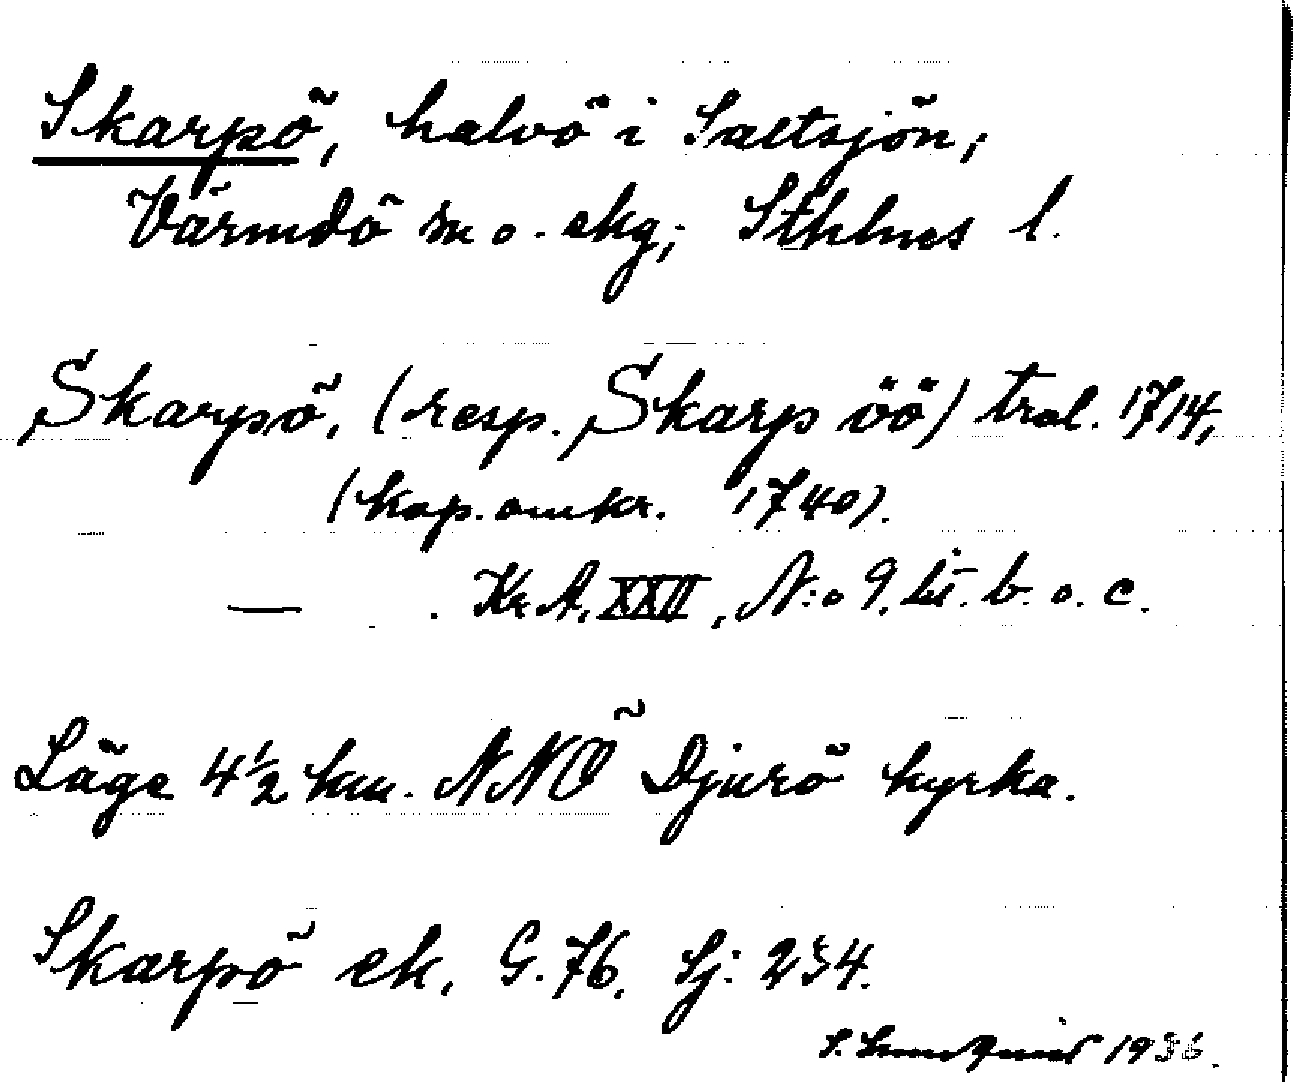 Skarpö, halvö i Saltsjön,
Värmdö sn o. skg; Sthlms l.
Skarpö, (resp. Skarp öö) trol. 1714,
(kop. omkr. 1740).
— . Kr A. XXII, N:o 9. lit. b. o. c.
Läge 4 1/2 km. NNÖ Djurö kyrka.
Skarpö ek. G. 76. Sj: 234.
S. 1936.